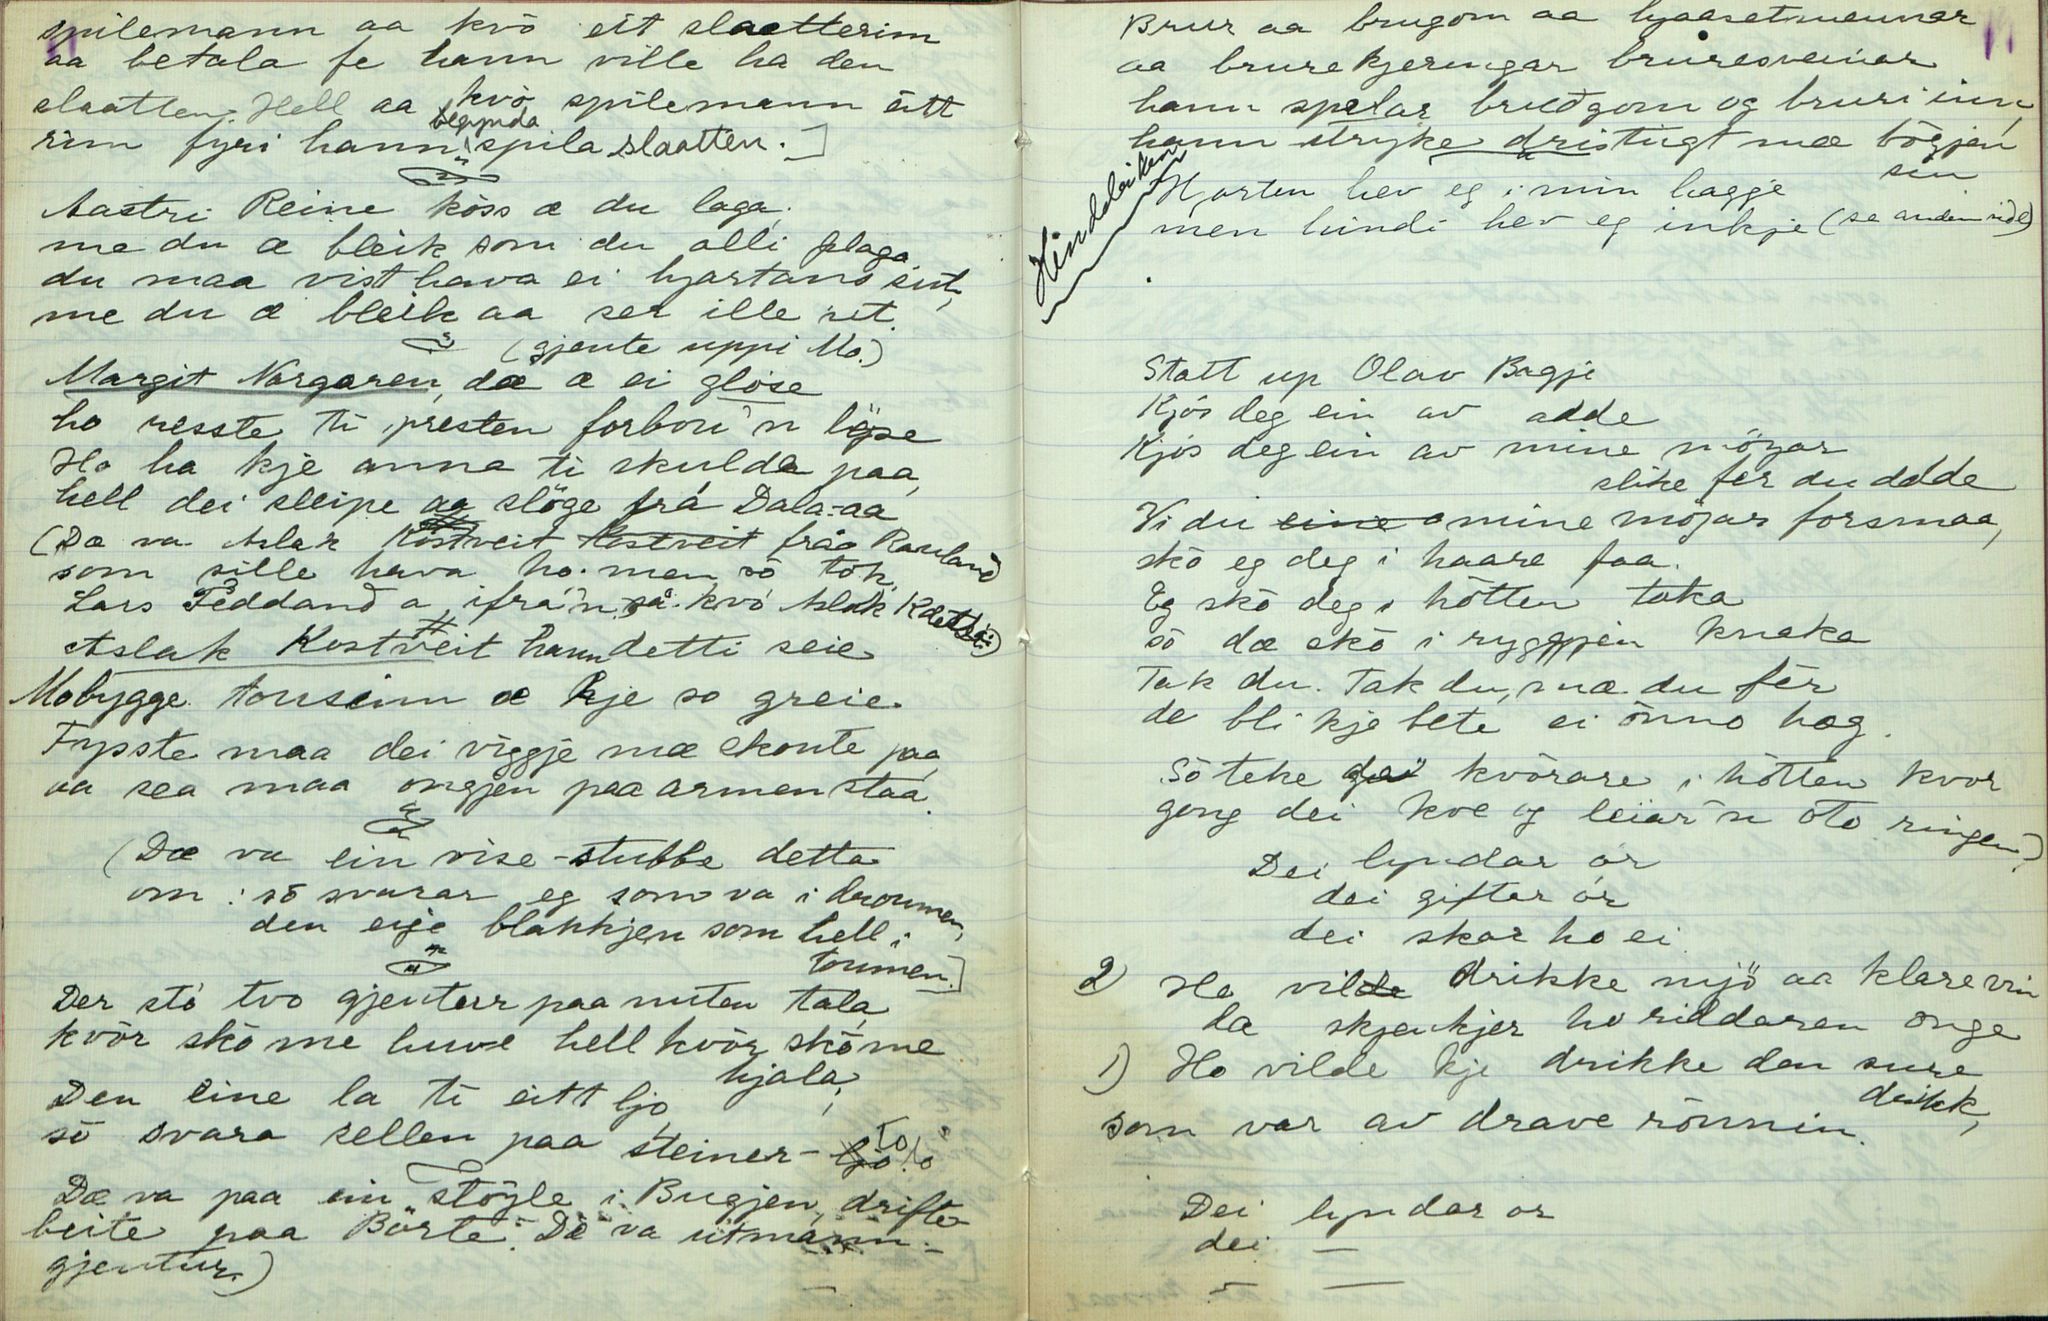 spilemann aa kvö eit slaatterim
aa betala fe hann ville ha den
slaatten. Hell aa kvö spilemann eitt
begynda
rim fyri hann spila slaatten.]
Aastri Reine köss æ du laga,
me du æ bleik som du alli plaga
du maa vist hava ei hjartans sut,
me du æ bleik aa ser ille ut.
(gjente uppi Mo.)
Margit Norgaren, dæ æ ei glose
ho resste ti presten forbori'n lÿse
Ho ha kje anna ti skulda paa,
hell dei sleipe aa slöge frá Dala-aa
(Dæ va Aslak Kostveit Kostveit fraa Rauland
som sille hava ho. men so tok
Lars Feddand a ifrá'n, så kvö Aslak
Aslak Kostveit hann detti seie
Mobygge tousinn æ kje so greie
Fysste maa dei viggje mæ skoute paa,
aa sea maa ongjen paa armen staa.
(Dæ va ein vise-stubbe detta
om: sö svarar eg som va i droumen,
den eige blakkjen som hell i
toumen.]
Der stó tvo gjenterr paa nuten tala,
kvör skö me huve hell kvör skö me
hjala,
Den eine la ti eitt ljo,
sö svara sellen paa steiner-ljo to
Dæ va paa ein stöyle i Bugjen, drifte-
beite paa Börte. Dæ va utmann-
gjentur)
Brur aa brugom aa hjaasetmennar
aa brurekjeringar bruresveinar
hann spelar brudgom og bruri inn,
hann stryke dristugt mæ bögjen
sin
Hindeleiken
Hjorten hev eg i min hagje
men hindi hev eg inkje (se anden side)
Statt up Olav Bagje
Kjós deg ein av adde
Kjós deg ein av mine möyar
slike fêr du adde
Vi du eine mine möjar forsmaa,
skö eg deg i haare faa.
Eg skö deg i hötten taka
sö dæ skö i ryggjen knaka
Tak du. Tak du, mæ du fêr
de bli kje bete ei önno hæg.
Sö teke dei kvörare i hötten kvor
gong dei kve og leiar'n oto ringen)
Dei lyndar ór
dei gifter ór
dei skar ho ei
2) Ho vilde drikke mjö aa klare vin
da skjenkjer ho riddaren onge
1) Ho vilde kje drikke den sure
drikk,
som var av drave rönnin.
Dei lyndar or
dei —
— —